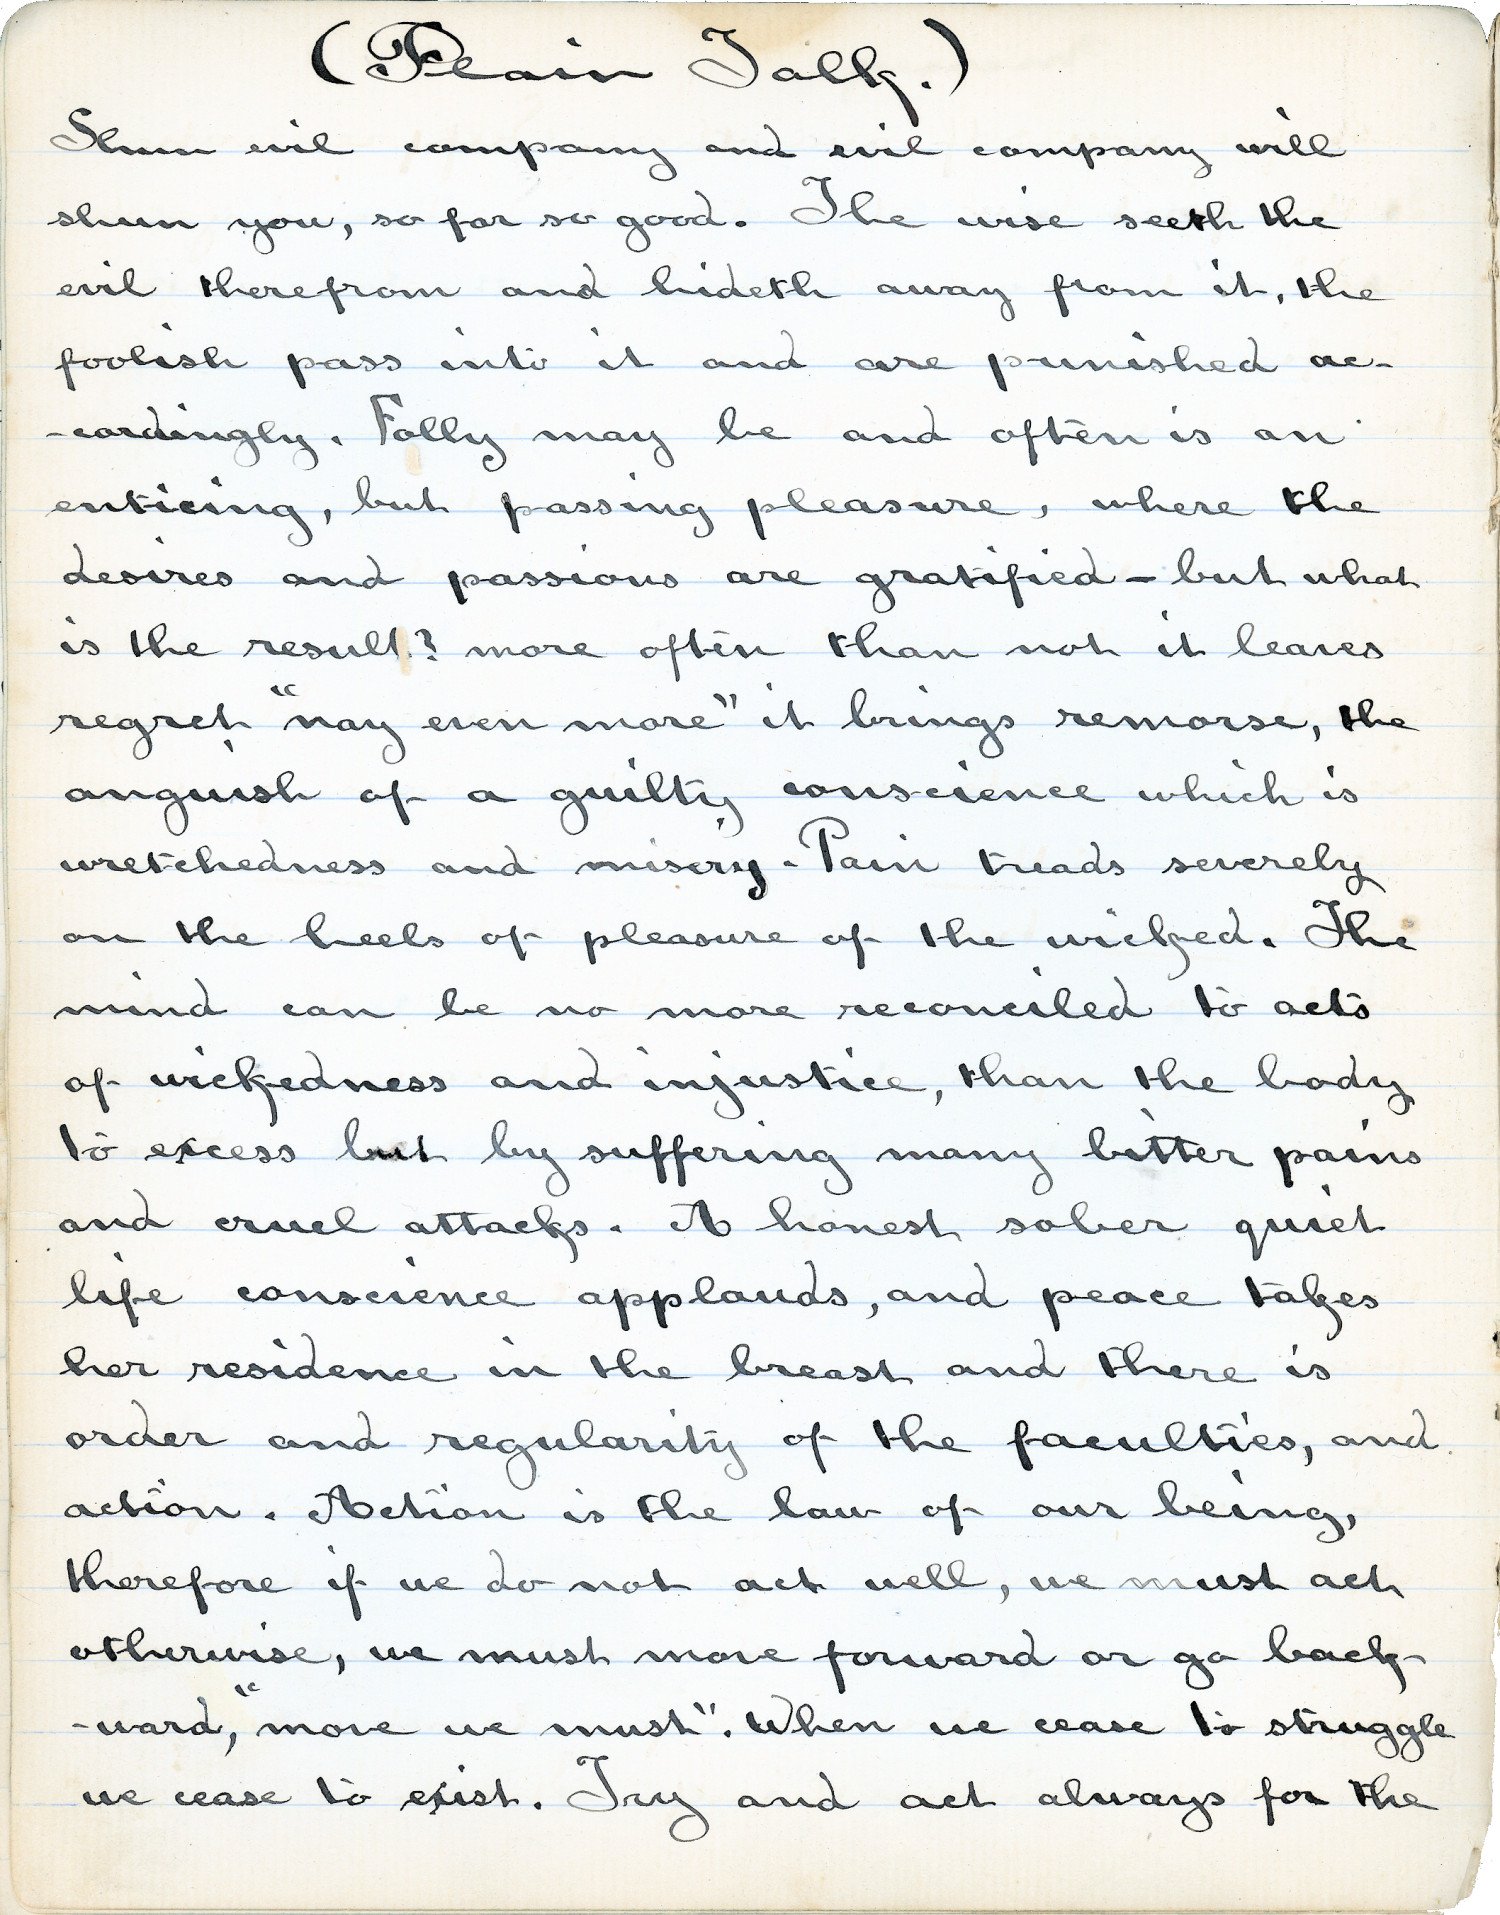 (Plain Talk.)
Shun evil company and evil company will
shun you, so far so good. The wise seeth the
evil therefrom and hideth away from it, the
foolish pass into it and are punished ac-
-cordingly. Folly may be and often is an
enticing, but passing pleasure, where the
desires and passions are gratified - but what
is the result? more often than not it leaves
regret "nay even more" it brings remorse, the
anguish of a guilty conscience which is
wretchedness and misery - Pain treads severely
on the heels of pleasure of the wicked. The
mind can be no more reconciled to acts
of wickedness and injustice, than the body
to excess but by suffering many bitter pains
and cruel attacks. A honest sober quiet
life conscience applauds, and peace takes
her residence in the breast and there is
order and regularity of the faculties, and
action. Action is the law of our being,
therefore if we do not act well, we must act
otherwise, we must move forward or go back-
-ward, "move we must". When we cease to struggle
we cease to exist. Try and act always for the